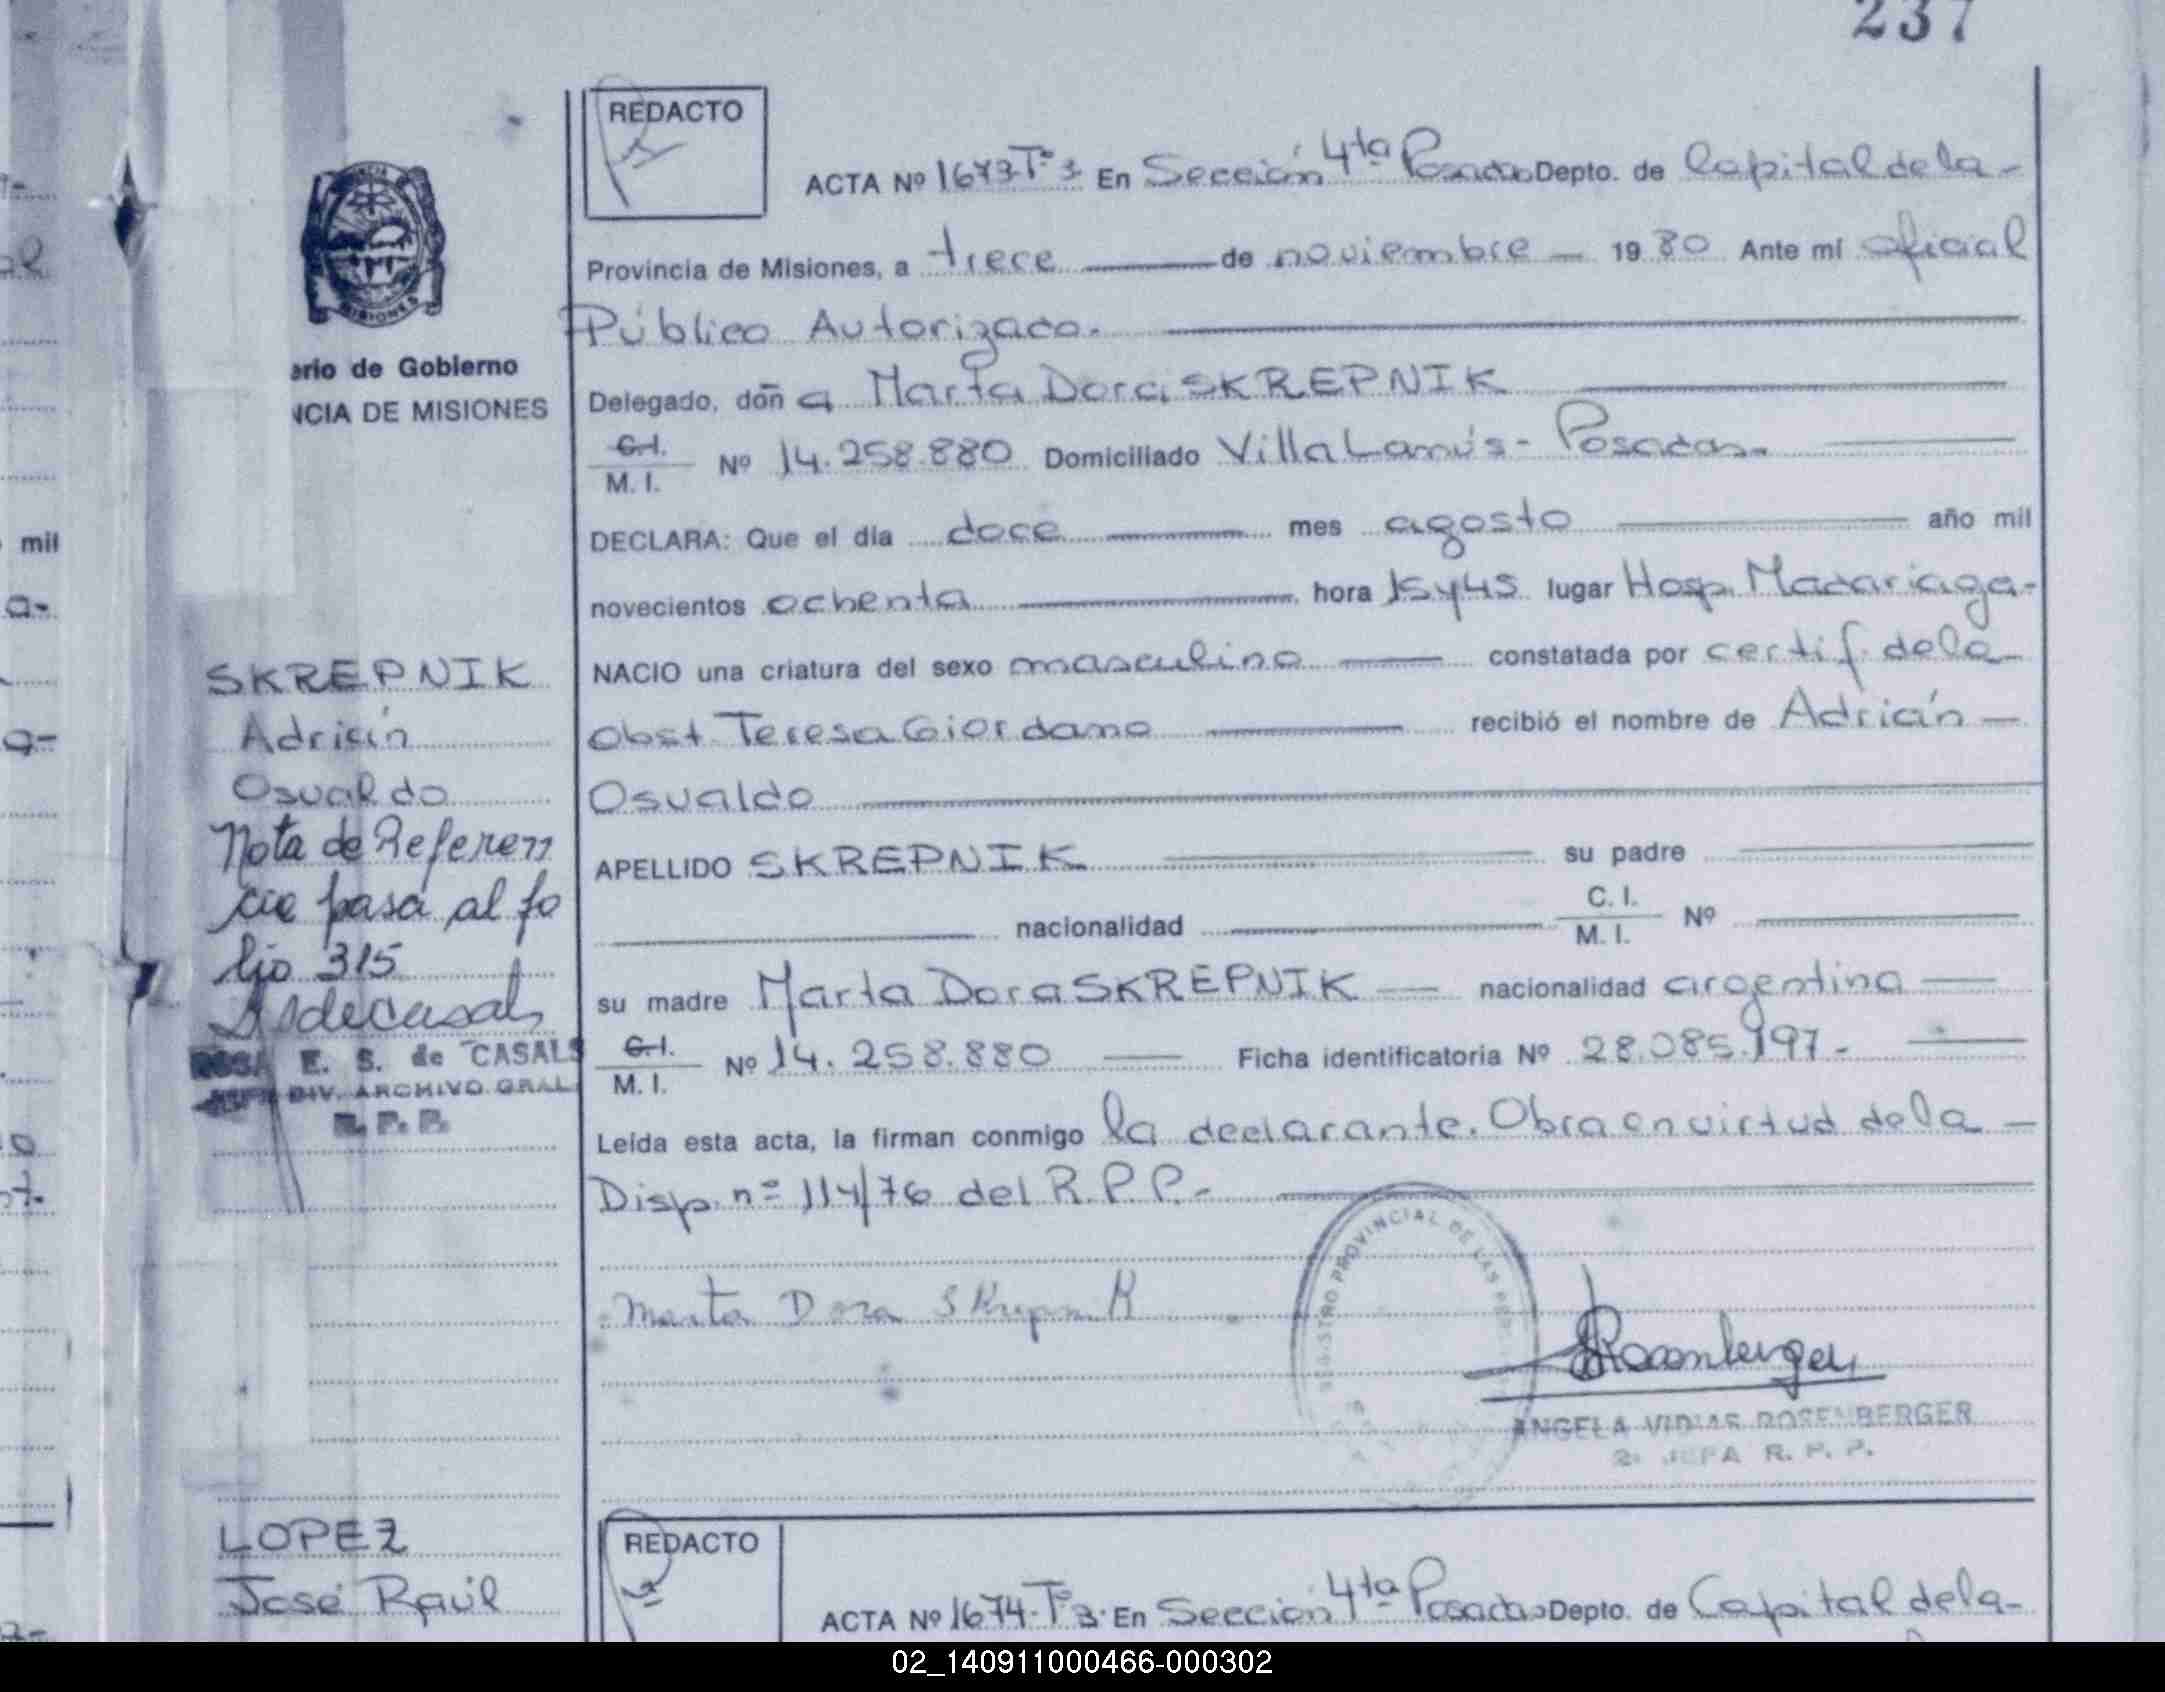 237
REDACTO
ACTA Nº 1673-Tº 3 En Sección 4ta Posadas Depto. de Capital de la-
Provincia de Misiones, a trece de noviembre 1980 Ante mí oficial
Público Autorizado.
Delegado, doñ a Marta Dora SKREPNIK
C.I.
M. I. Nº 14.258.880 Domiciliado Villa Lanús - Posadas.
DECLARA: Que el día doce mes agosto año mil
novecientos ochenta hora 15 y 45 lugar Hosp. Madariaga-
NACIO una criatura del sexo masculino constatada por certif. de la
Obst. Teresa Giordano recibió el nombre de Adrián
Osvaldo
APELLIDO SKREPNIK su padre
nacionalidad C. I.
M. I. Nº
su madre Marta Dora SKREPNIK nacionalidad argentina
C.I.
M. I. Nº 14.258.880 Ficha identificatoria Nº 28.085.197-
Leída esta acta, la firman conmigo la declarante. Obra en virtud de la
Disp. nº 114/76 del R.P.P.-
Marta Dora Skrepnik
REGISTRO PROVINCIAL DE LAS
Rosenberger
ANGELA VIDIAS ROSENBERGER
2º JEFA R. P. P.
MISIONES
erio de Gobierno
NCIA DE MISIONES
SKREPNIK
Adrián
Osvaldo
Nota de Referen
cia pasa al fo
lio 315
ROSA E. S. de CASALS
JEFE DIV. ARCHIVO GRAL.
R. P. P.
mil
a-
LOPEZ
José Raúl
REDACTO
ACTA Nº 1674-Tº 3. En Sección 4ta Posadas Depto. de Capital de la-
02_140911000466-000302